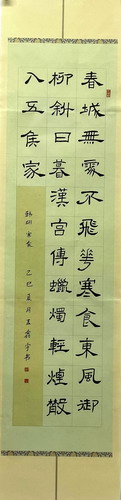 春城無處不飛花寒食東風御
柳斜日暮漢宮傳蠟燭輕煙散
入五侯家
韩翃寒食